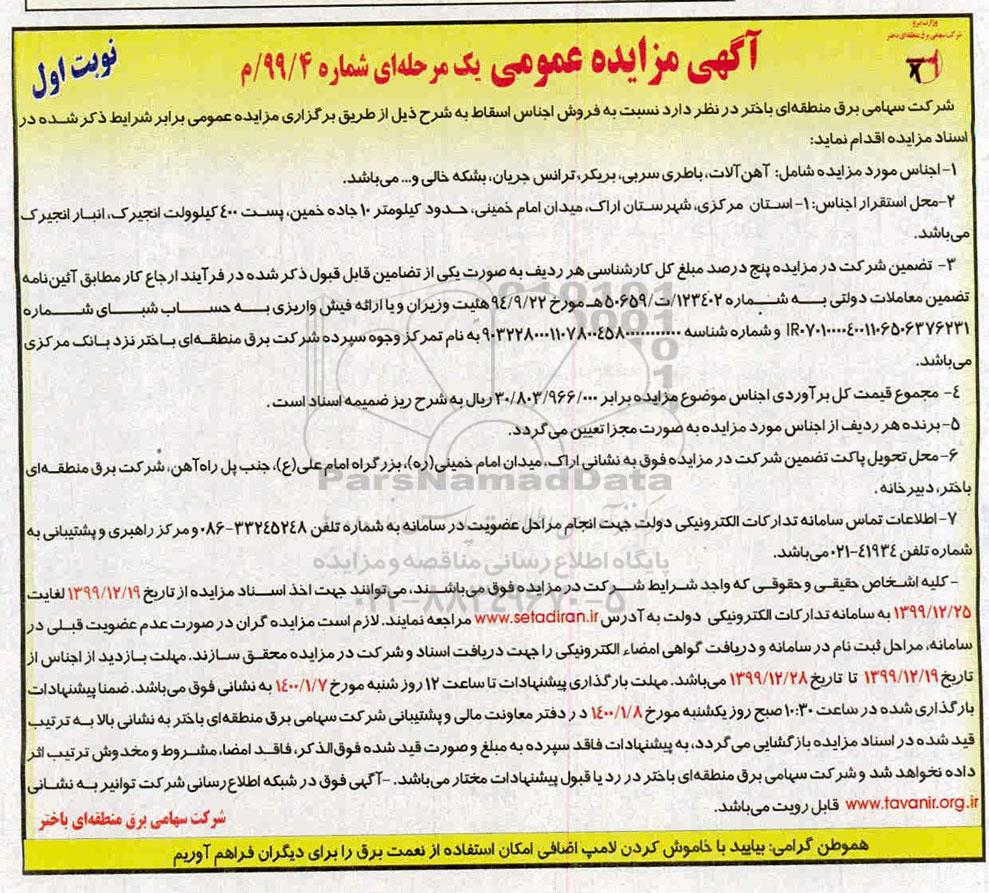 وزارت نیرو
شرکت سهامی برق منطقه‌ای باختر
آگهی مزایده عمومی یک مرحله‌ای شماره ۹۹/۴/م
نوبت اول
شرکت سهامی برق منطقه‌ای باختر در نظر دارد نسبت به فروش اجناس اسقاط به شرح ذیل از طریق برگزاری مزایده عمومی برابر شرایط ذکر شده در
اسناد مزایده اقدام نماید:
۱- اجناس مورد مزایده شامل: آهن آلات، باطری سربی، بریکر، ترانس جریان، بشکه خالی و... می‌باشد.
۲- محل استقرار اجناس: ۱- استان مرکزی، شهرستان اراک، میدان امام خمینی، حدود کیلومتر ۱۰ جاده خمین، پست ۴۰۰ کیلوولت انجیرک، انبار انجیرک
می‌باشد.
۳- تضمین شرکت در مزایده پنج درصد مبلغ کل کارشناسی هر ردیف به صورت یکی از تضامین قابل قبول ذکر شده در فرآیند ارجاع کار مطابق آئین‌نامه
تضمین معاملات دولتی به شماره ۱۲۳۴۰۲/ت/۵۰۶۵۹ هـ مورخ ۹۴/۹/۲۲ هئیت وزیران و یا ارائه فیش واریزی به حساب شبای شماره
و شماره شناسه به نام تمرکز وجوه سپرده شرکت برق منطقه‌ای باختر نزد بانک مرکزی
می‌باشد.
۴- مجموع قیمت کل برآوردی اجناس موضوع مزایده برابر ۳۰/۸۰۳/۹۶۶/۰۰۰ ریال به شرح ریز ضمیمه اسناد است.
۵- برنده هر ردیف از اجناس مورد مزایده به صورت مجزا تعیین می‌گردد.
۶- محل تحویل پاکت تضمین شرکت در مزایده فوق به نشانی اراک، میدان امام خمینی(ره)، بزرگراه امام علی(ع)، جنب پل راه‌آهن، شرکت برق منطقه‌ای
باختر، دبیرخانه.
۷- اطلاعات تماس سامانه تدارکات الکترونیکی دولت جهت انجام مراحل عضویت در سامانه به شماره تلفن ۳۳۲۴۵۲۴۸-۰۸۶ و مرکز راهبری و پشتیبانی به
شماره تلفن ۴۱۹۳۴-۰۲۱ می‌باشد.
- کلیه اشخاص حقیقی و حقوقی که واجد شرایط شرکت در مزایده فوق می‌باشند، می‌توانند جهت اخذ اسناد مزایده از تاریخ ۱۳۹۹/۱۲/۱۹ لغایت
۱۳۹۹/۱۲/۲۵ به سامانه تدارکات الکترونیکی دولت به آدرس www.setadiran.ir مراجعه نمایند. لازم است مزایده گران در صورت عدم عضویت قبلی در
سامانه، مراحل ثبت نام در سامانه و دریافت گواهی امضاء الکترونیکی را جهت دریافت اسناد و شرکت در مزایده محقق سازند. مهلت بازدید از اجناس از
تاریخ ۱۳۹۹/۱۲/۱۹ تا تاریخ ۱۳۹۹/۱۲/۲۸ می‌باشد. مهلت بارگذاری پیشنهادات تا ساعت ۱۲ روز شنبه مورخ ۱۴۰۰/۱/۷ به نشانی فوق می‌باشد. ضمنا پیشنهادات
بارگذاری شده در ساعت ۱۰:۳۰ صبح روز یکشنبه مورخ ۱۴۰۰/۱/۸ در دفتر معاونت مالی و پشتیبانی شرکت سهامی برق منطقه‌ای باختر به نشانی بالا به ترتیب
قید شده در اسناد مزایده بازگشایی می‌گردد، به پیشنهادات فاقد سپرده به مبلغ و صورت قید شده فوق‌الذکر، فاقد امضا، مشروط و مخدوش ترتیب اثر
داده نخواهد شد و شرکت سهامی برق منطقه‌ای باختر در رد یا قبول پیشنهادات مختار می‌باشد. -آگهی فوق در شبکه اطلاع‌رسانی شرکت توانیر به نشانی
www.tavanir.org.ir قابل رویت می‌باشد.
شرکت سهامی برق منطقه‌ای باختر
هموطن گرامی: بیایید با خاموش کردن لامپ اضافی امکان استفاده از نعمت برق را برای دیگران فراهم آوریم
ParsNamadData
پایگاه اطلاع رسانی مناقصه و مزایده